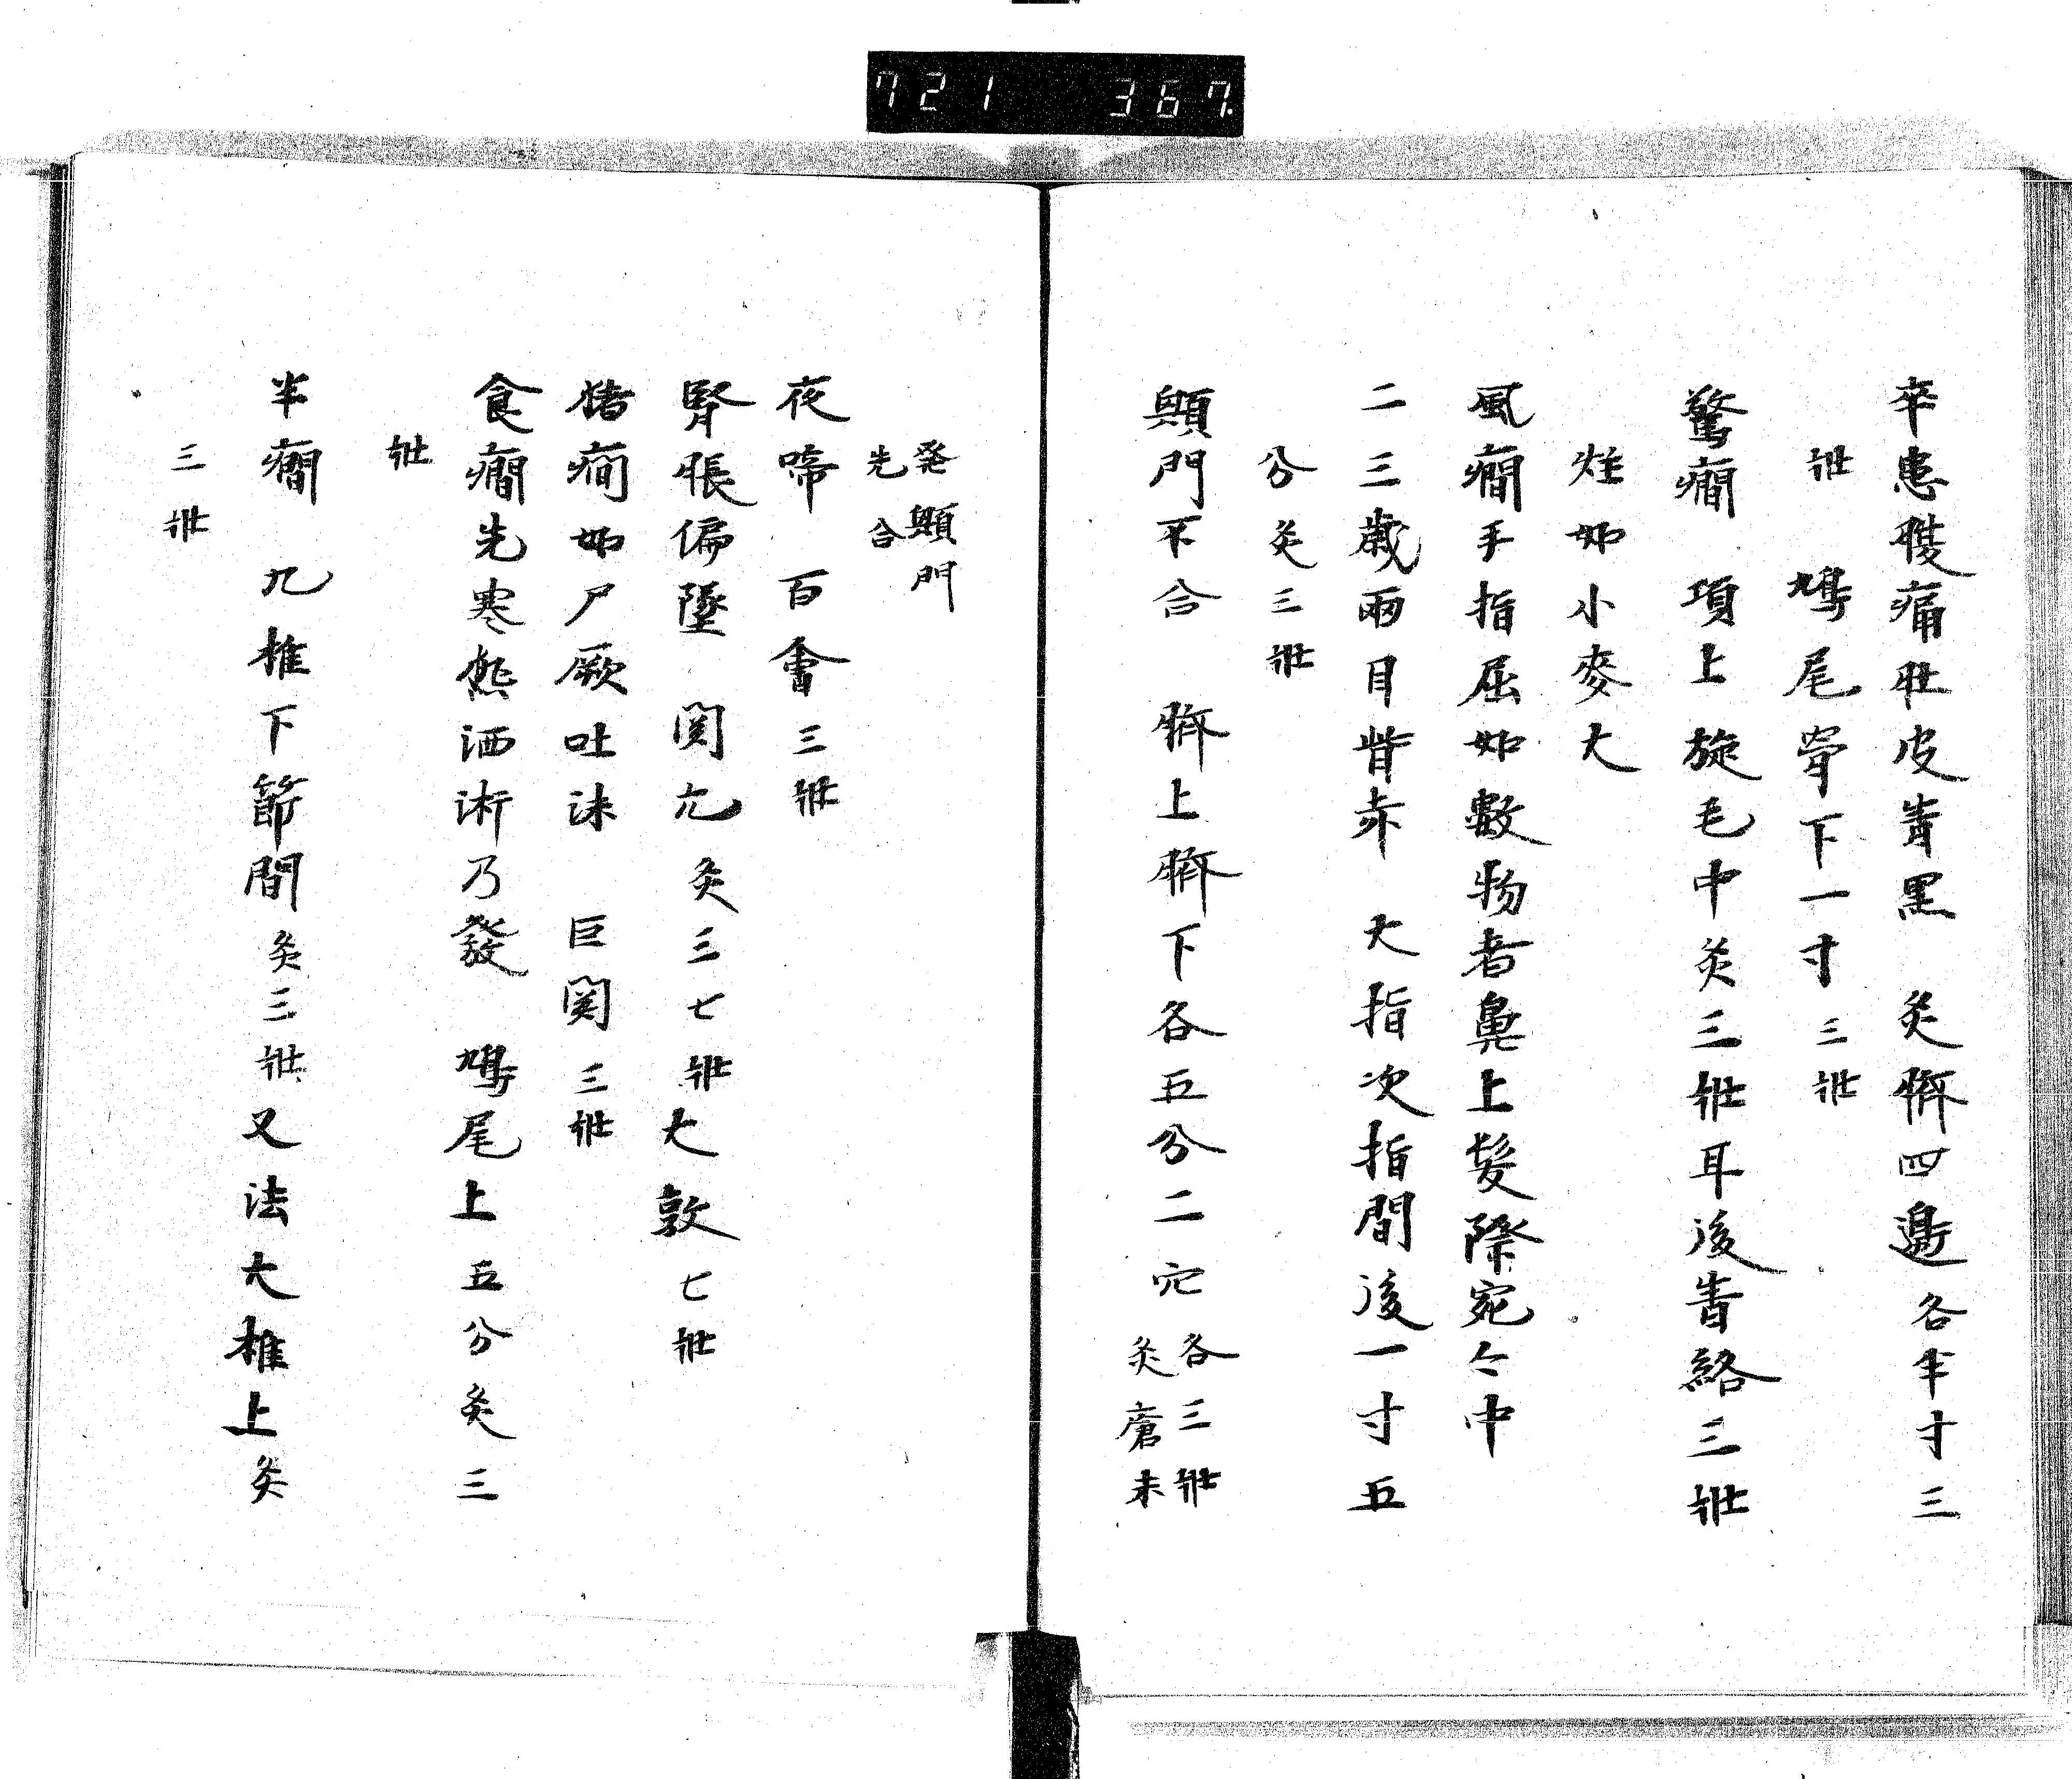 721 367
卒患腹痛肚皮青黒 灸臍四邊各半寸三
壯 鳩尾骨下一寸三壯
驚癇 項上旋毛中灸三壯耳後青絡三壯
炷如小麥大
風癇手指屈如數物者鼻上髪際宛々中
二三歳兩目眥赤 大指次指間後一寸五
分灸三壯
顖門不合 臍上臍下各五分二穴各三壯
灸瘡未
発顖門
先合
夜啼 百會三壯
腎脹偏墜 関元灸三七壯大敦七壯
猪癇如尸厥吐沫 巨関三壯
食癇先寒熱洒淅乃發 鳩尾上五分灸三
壯
羊癇 九椎下節間灸三壯又法大椎上灸
三壯